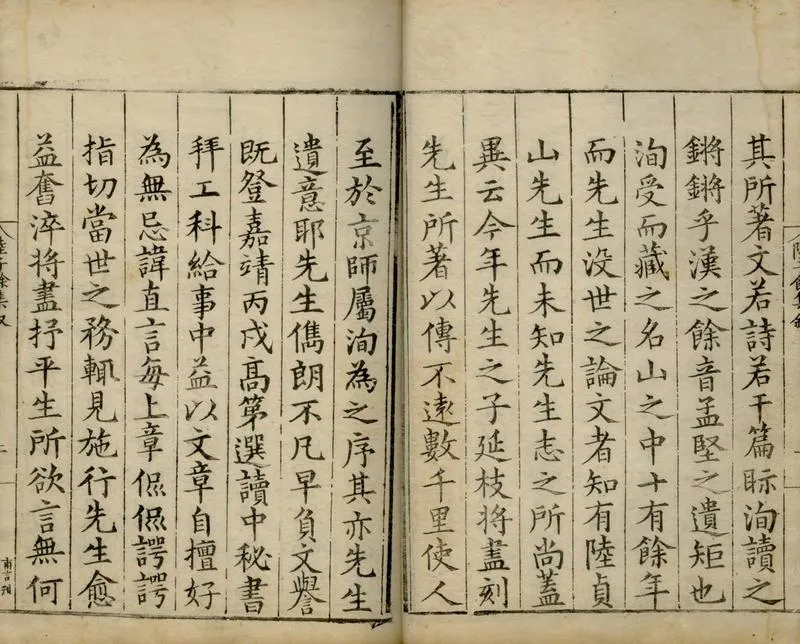 其所著文若詩若干篇眎洵讀之
鏘鏘乎漢之餘音孟堅之遺矩也
洵受而藏之名山之中十有餘年
而先生没世之論文者知有陸貞
山先生而未知先生志之所尚蓋
異云今年先生之子延枝將盡刻
先生所著以傳不遠數千里使人
至於京師屬洵為之序其亦先生
遺意耶先生儁朗不凡早負文譽
既登嘉靖丙戌高第選讀中秘書
拜工科給事中益以文章自擅好
為無忌諱直言每上章侃侃諤諤
指切當世之務輒見施行先生愈
益奮淬將盡抒平生所欲言無何